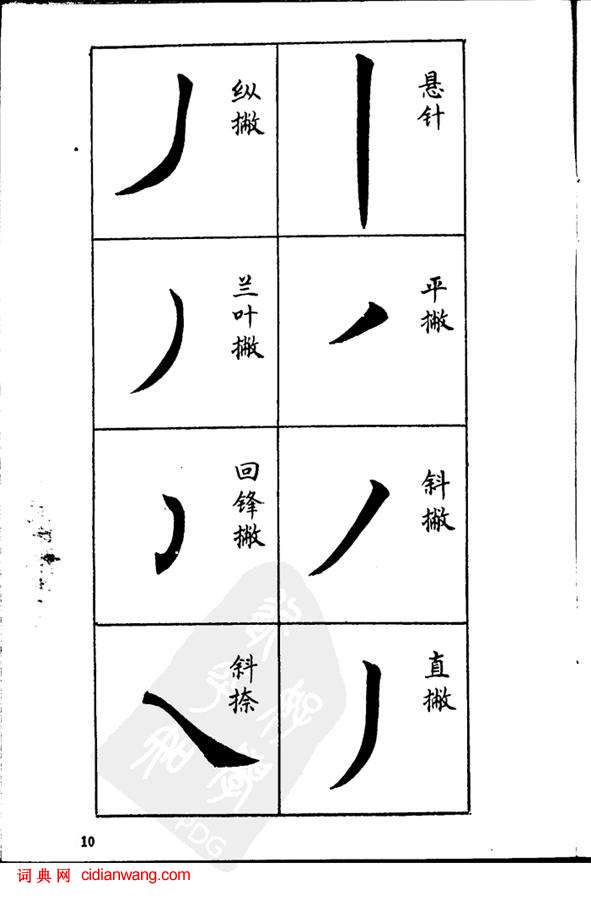 悬针
平撇
斜撇
直撇
纵撇
兰叶撇
回锋撇
斜捺
10
词典网 cidianwang.com